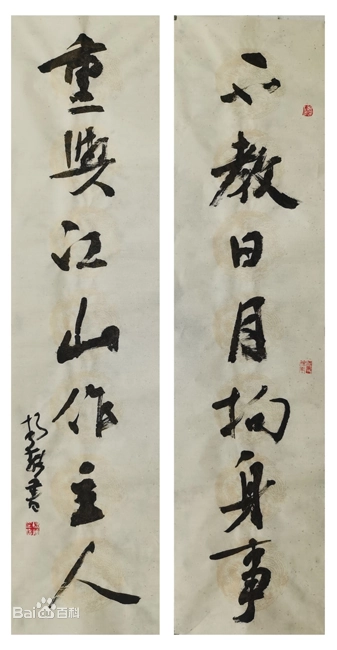 不教日月拘身事
重與江山作主人
書
Bai du 百科